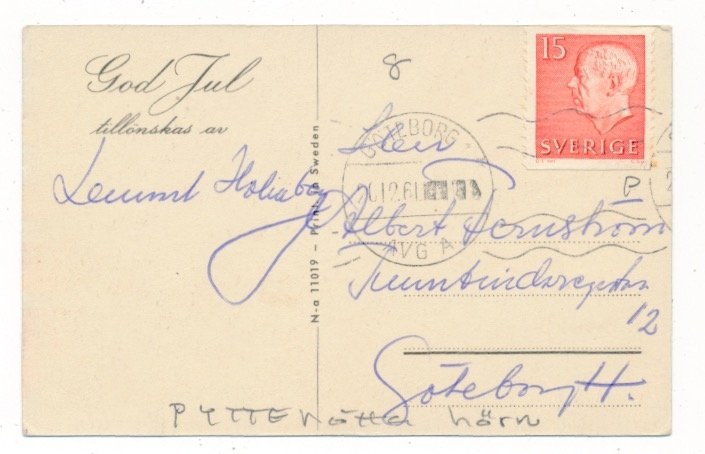 God Jul
tillönskas av
Lennart
N-a 11019 – Print. in Sweden
8
15
SVERIGE
GÖTEBORG 1
12.61
AVG A
P
Herr
Albert Fernström
12
Göteborg H.
PYTTE nötta hörn